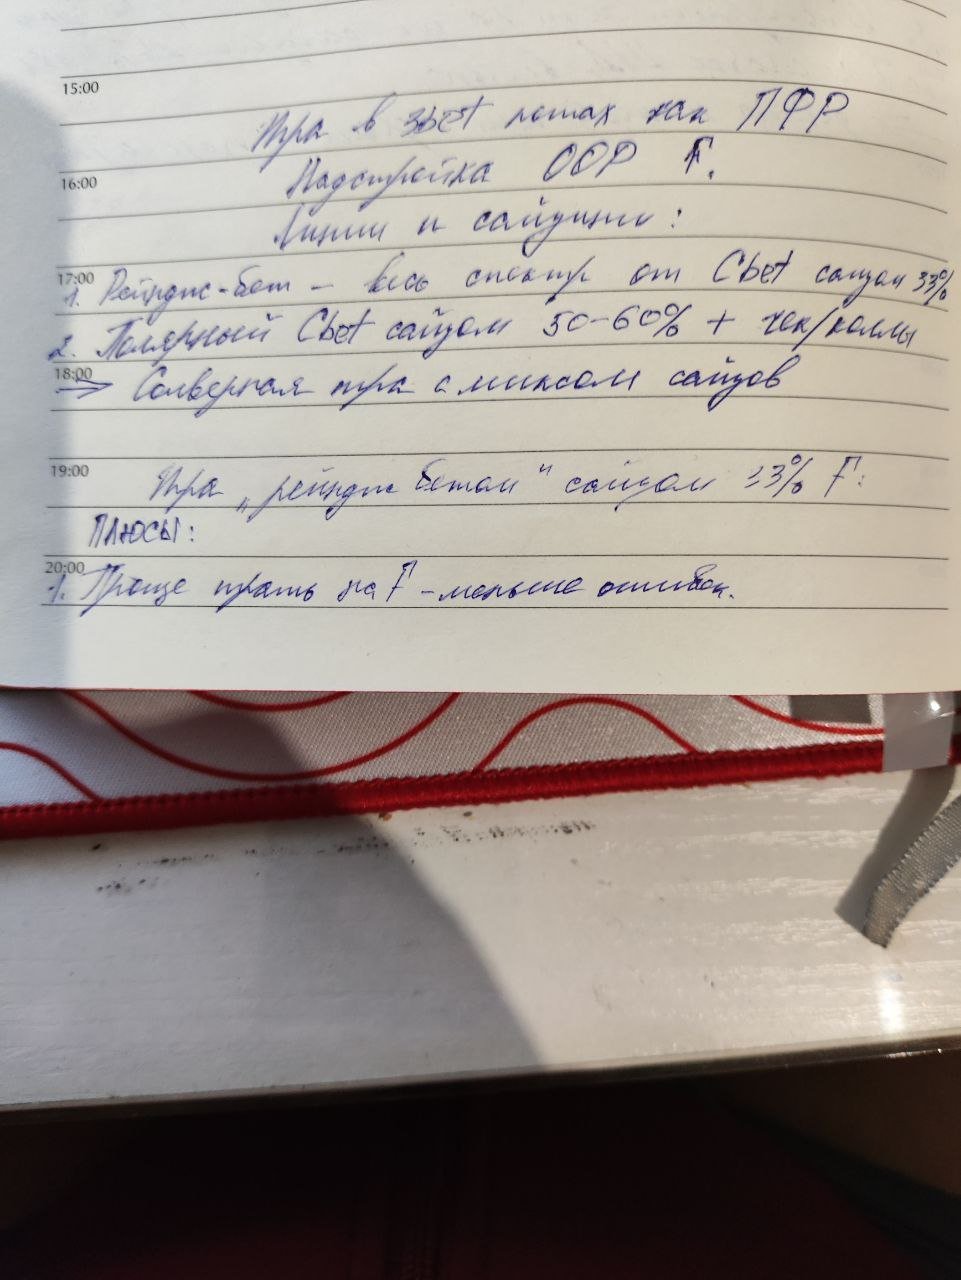 15:00
Игра в 3bet потах как ПФР
16:00
Надстройка OOP F.
Линии и сайдинги:
17:00
1. Рейндж-бет – весь спектр от Cbet сайзом 33%
2. Полярный Cbet сайзом 50-60% + чек/коллы
18:00
→ Солверная игра с миксом сайзов
19:00
Игра „рейндж бетом" сайзом 33% F:
ПЛЮСЫ:
20:00
1. Проще играть на F – меньше ошибок.